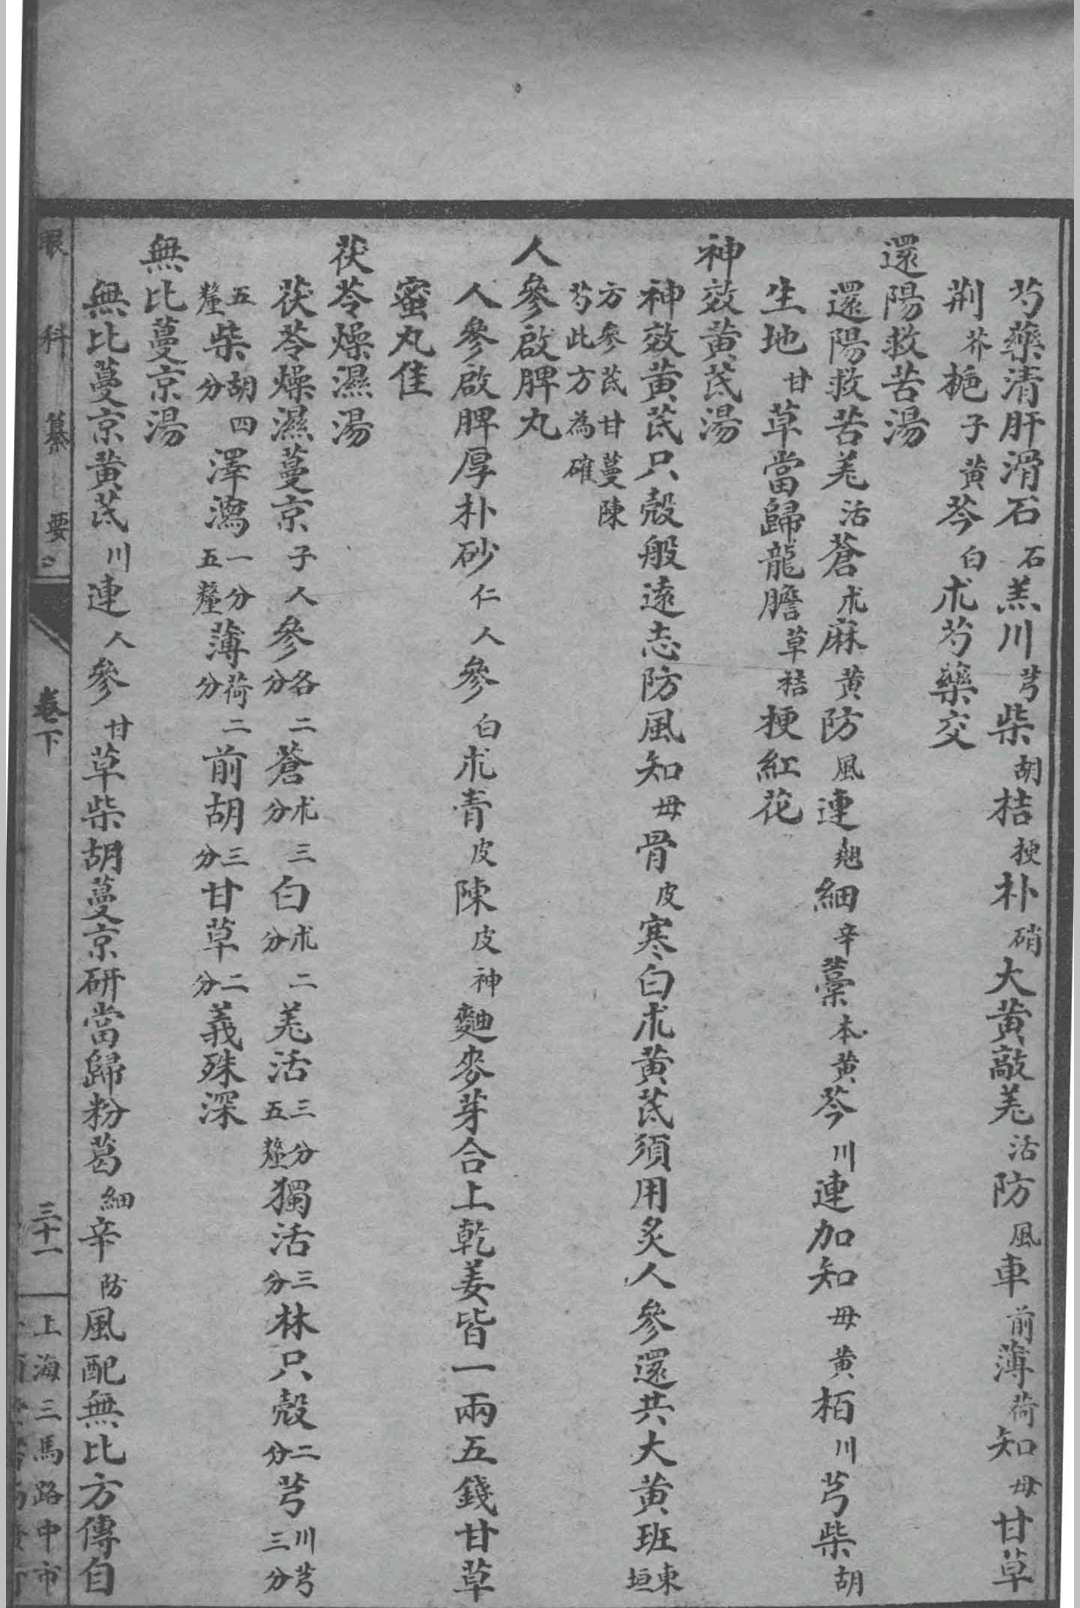 芍藥清肝滑石石羔川芎柴胡桔梗朴硝大黃敲羌活防風車前薄荷知母甘草
荆芥梔子黃芩白朮芍藥交
還陽救苦湯
還陽救苦羌活蒼朮麻黃防風連翹細辛藁本黃芩川連加知母黃栢川芎柴胡
生地甘草當歸龍膽草桔梗紅花
神效黃芪湯
神效黃芪只殼般遠志防風知母骨皮寒白朮黃芪須用炙人參還共大黃班東垣
方參芪甘蔓陳
芍此方為確
人參啟脾丸
人參啟脾厚朴砂仁人參白朮青皮陳皮神麯麥芽合上乾姜皆一兩五錢甘草
蜜丸佳
茯苓燥濕湯
茯苓燥濕蔓京子人參各二分蒼朮三分白朮二分羌活三分五釐獨活三分林只殼二分芎川芎三分
五釐柴胡四分澤瀉一分五釐薄荷二分前胡三分甘草二分義殊深
無比蔓京湯
無比蔓京黃芪川連人參甘草柴胡蔓京研當歸粉葛細辛防風配無比方傳自
眼科纂要
卷下
三十一
上海三馬路中市